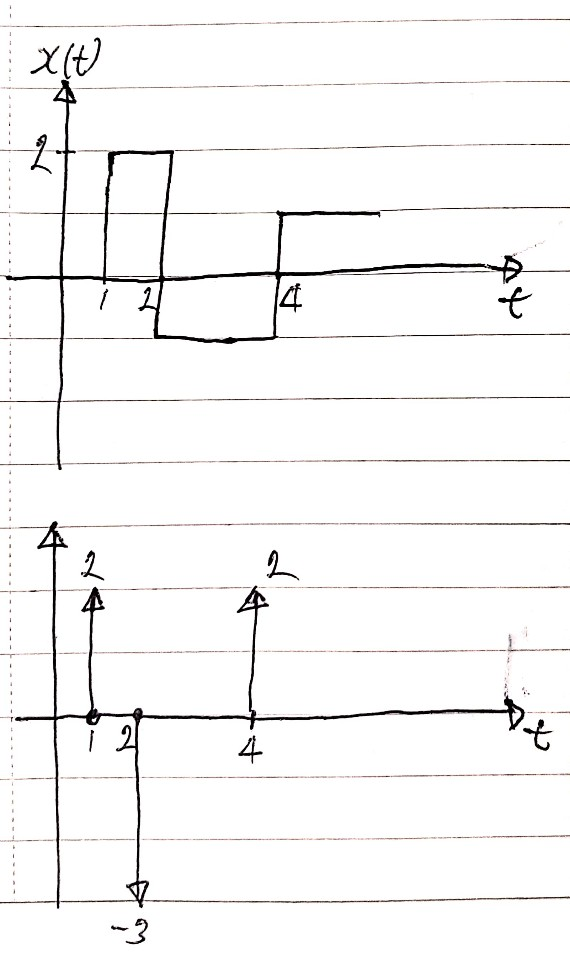 x(t)
2
1 2 4
t
2 2
1 2 4
t
-3